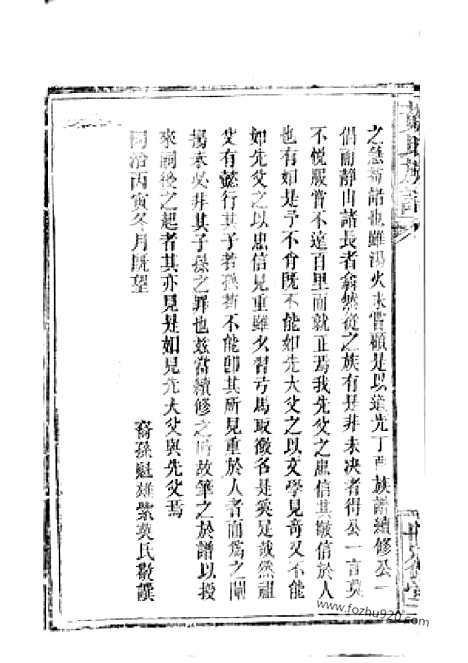 之急苟諾也雖湯火未嘗顧是以道光丁酉族譜續修公一
倡而靜山諸長者翕然從之族有是非未决者得公一言莫
不悅服嘗不遠百里而就正焉我先父之忠信其敬信於人
也有如是予不肖既不能如先大父之以文學見奇又不能
如先父之以忠信見重雖少習弓馬取微名是奚足哉然祖
父有懿行其子若孫苟不能即其所見重於人者而爲之闡
揚未必非其子孫之罪也茲當續修之時故筆之於譜以授
來嗣後之起者其亦見是如見先大父與先父焉
同治丙寅冬月既望
裔孫魁雄紫英氏敬譔
氏族譜
堂
www.fozhu920.com